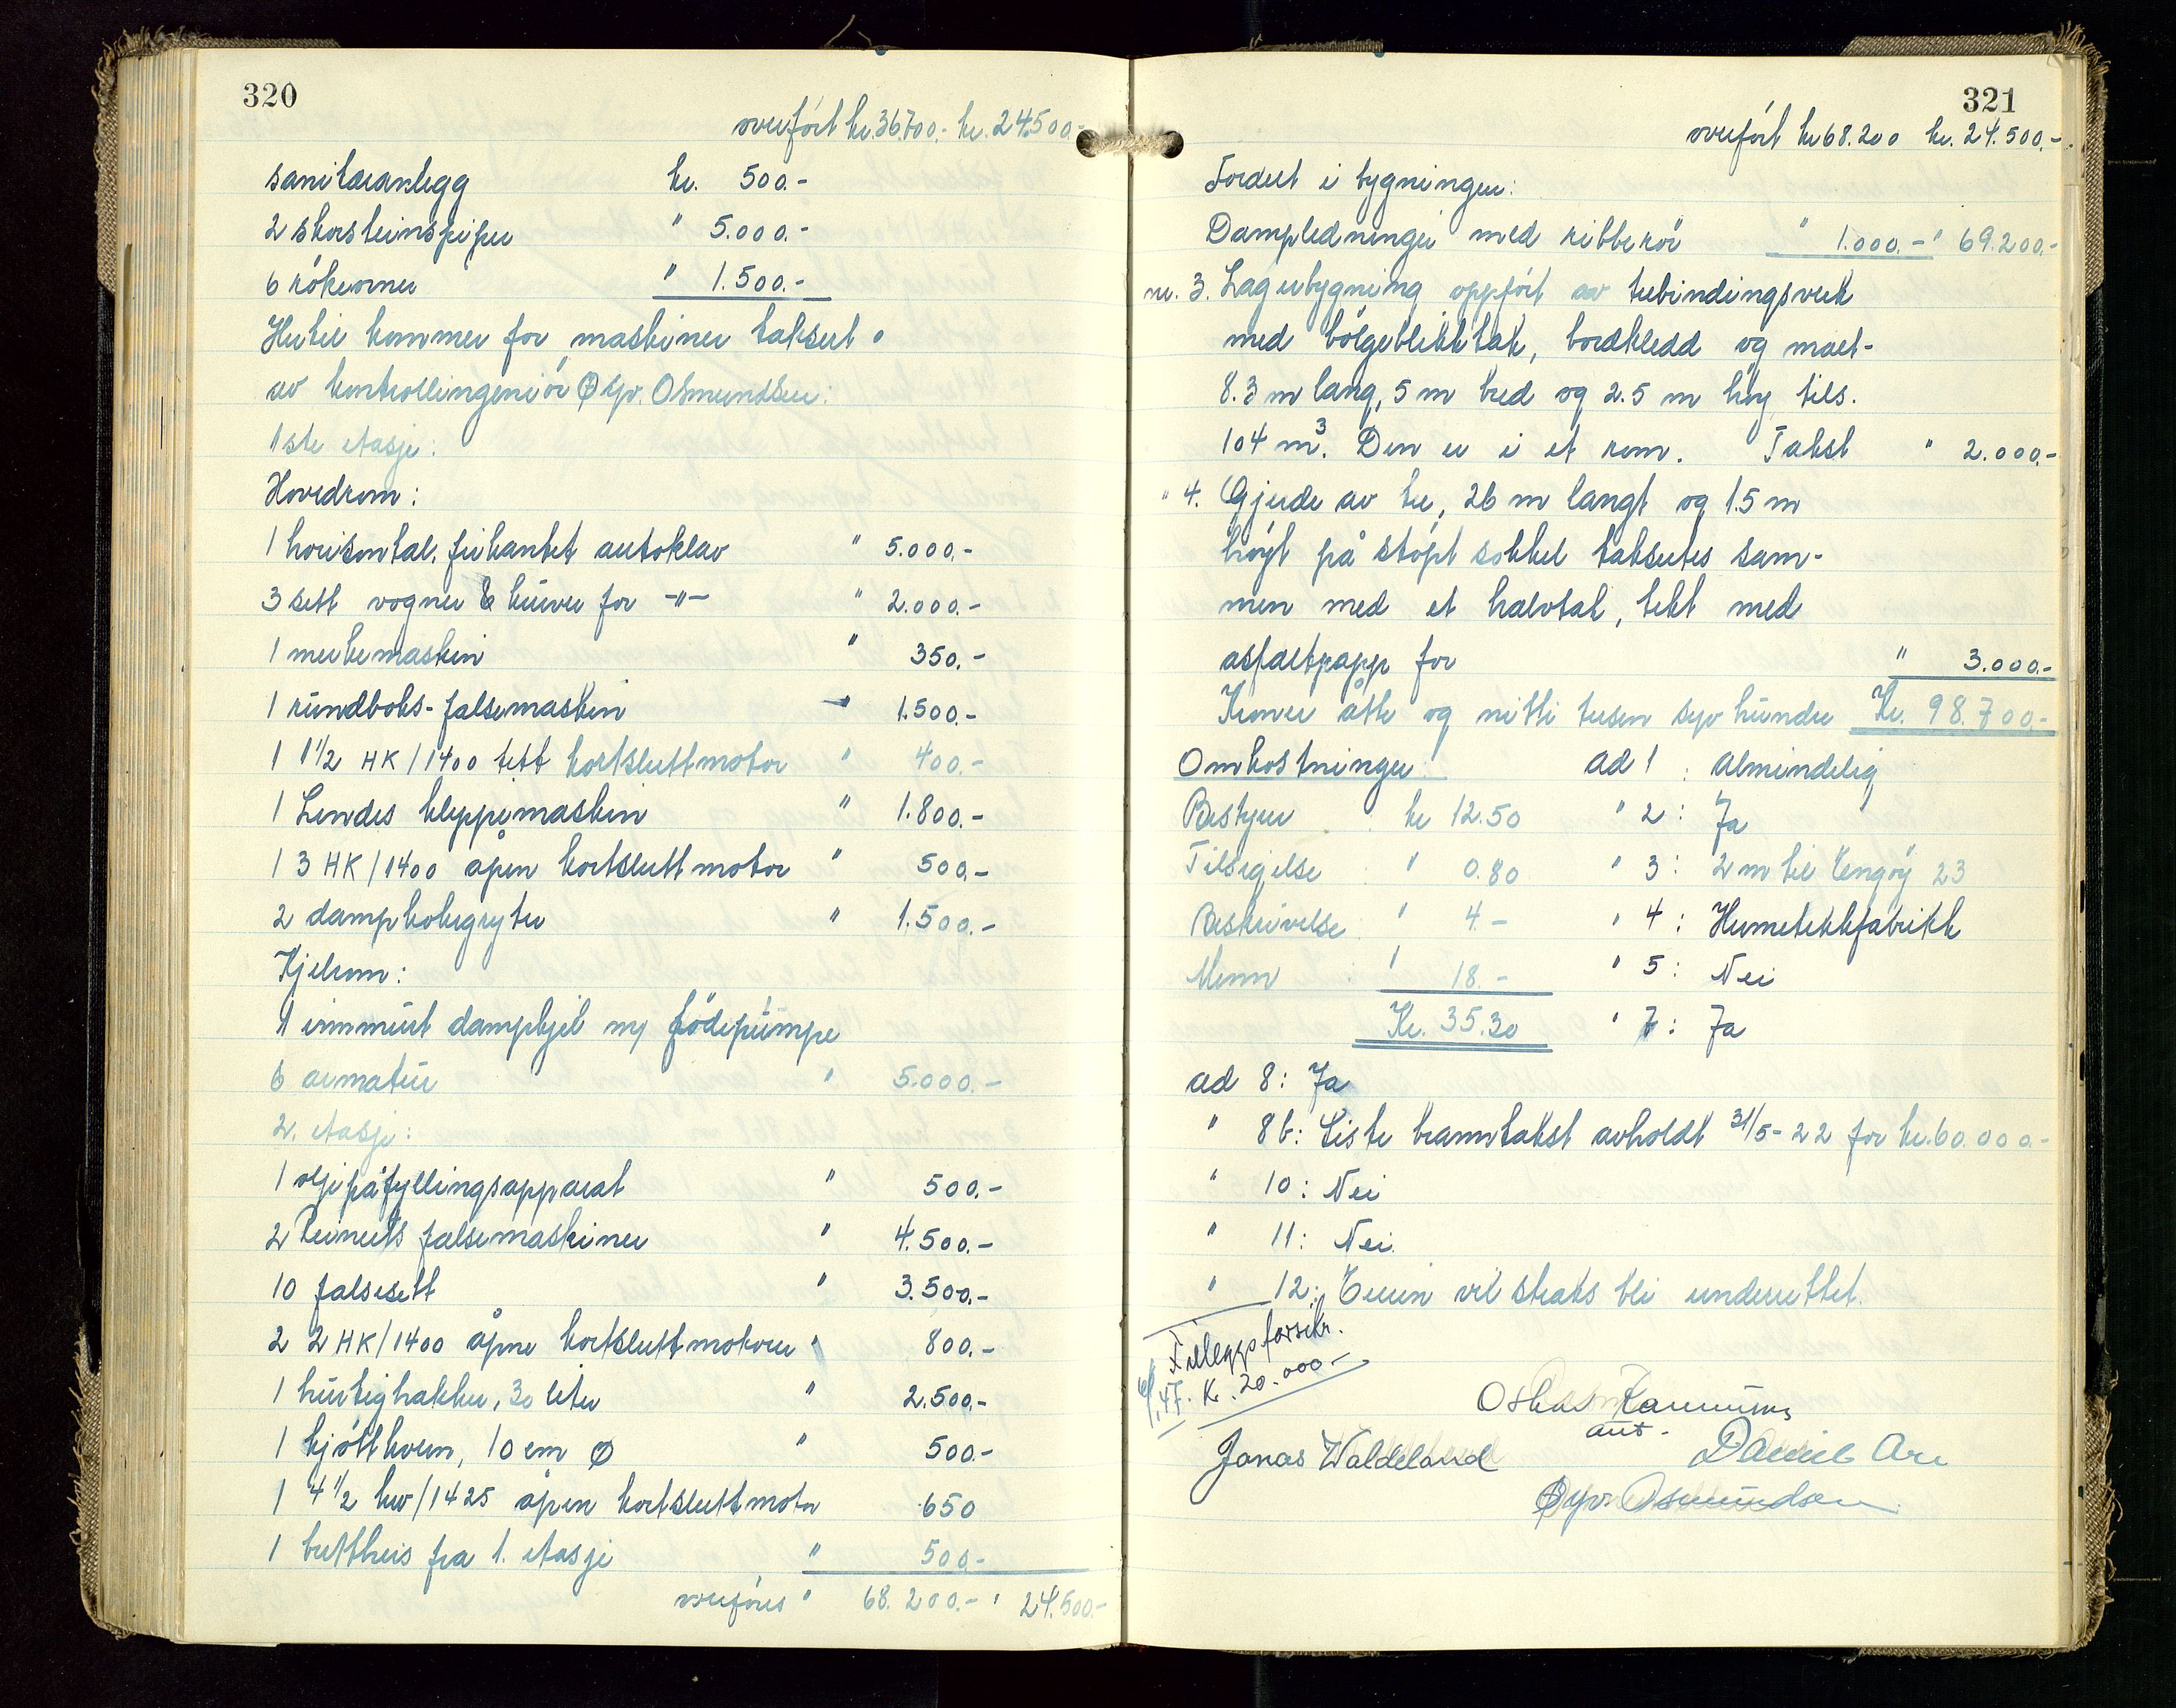 320
overført kr. 36.700.- kr. 24.500.-
sanitæranlegg kr. 500.-
2 skorsteinspiper " 5.000.-
6 rökeovner " 1.500.-
Hertil kommer for maskiner taksert
av kontrollingeniör Øyv. Osmundsen:
1ste etasje:
Hovedrom:
1 horisontal. firkantet autoklav " 5.000.-
3 sett vogner & kurver for -"- " 2.000.-
1 merkemaskin " 350.-
1 rundboks-falsemaskin " 1.500.-
1 1 1/2 HK/1400 tett kortsluttmotor " 400.-
1 Lendes kleppemaskin " 1.800.-
1 3 HK/1400 åpen kortsluttmotor " 500.-
2 dampkokegryter " 1.500.-
Kjelrom:
1 innmurt dampkjel m/ födepumpe
& armatur " 5.000.-
2. etasje:
1 oljepåfyllingsapparat " 500.-
2 Reinerts falsemaskiner " 4.500.-
10 falsesett " 3.500.-
2 2 HK/1400 åpne kortsluttmotorer " 800.-
1 hurtighakker, 30 liter " 2.500.-
1 kjöttkvern, 10 cm Ø " 500.-
1 4 1/2 kw/1425 åpen kortsluttmotor 650
1 bettheis fra 1. etasje " 500.-
overføres " 68.200.- " 24.500.-
321
overført kr 68.200 kr. 24.500.-
Fordelt i bygningen:
Dampledninger med ribberör " 1.000.- " 69.200.-
nr. 3. Lagerbygning oppfört av trebindingsverk
med bölgeblikktak, bordkledd og malt.
8.3 m lang, 5 m bred og 2.5 m höy tils.
104 m³. Den er i et rom. Takst " 2.000.-
" 4. Gjerde av tre, 26 m langt og 1.5 m
höyt på stöpt sokkel takseres sam-
men med et halvtak, tekt med
asfaltpapp for " 3.000.-
Kroner åtte og nitti tusen syv hundre Kr. 98.700.-
Omkostninger: ad 1 : Almindelig
Bestyrer kr 12.50 " 2 : Ja
Tilsigelse " 0.80 " 3 : 2 m til Engöy 23
Beskrivelse " 4.- " 4 : Hermetikkfabrikk
Menn " 18.- " 5 : Nei
Kr. 35.30 " 7 : Ja
ad 8 : Ja
" 8 b : Siste branntakst avholdt 31/5-22 for kr. 60.000.-
" 10 : Nei
" 11 : Nei.
" 12 : Eieren vil straks bli underrettet.
Tilleggsforsikr.
47. K. 20.000.-
Jonas Waldeland
ant.
Øyv. Osmundsen